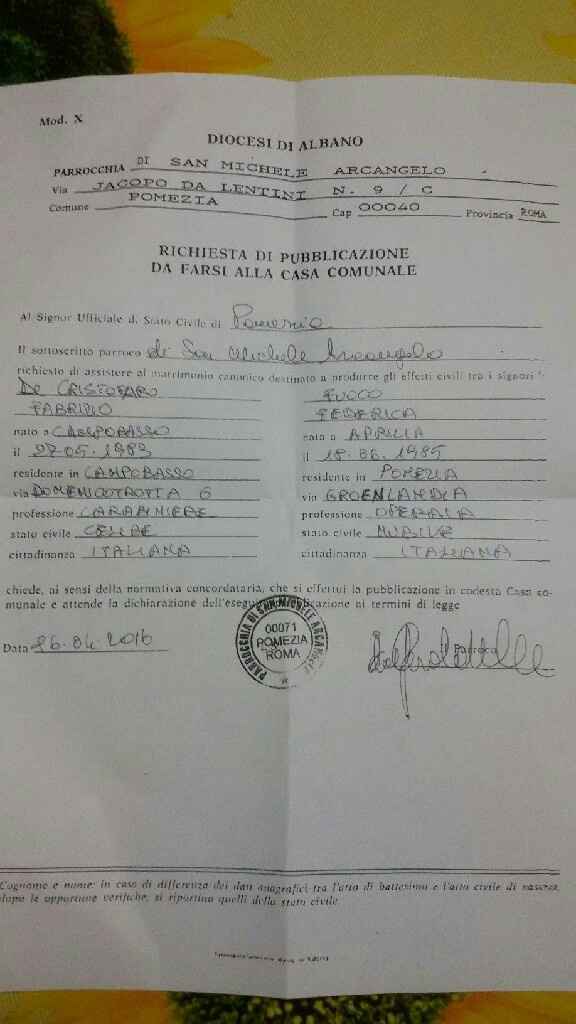 Mod. X
DIOCESI DI ALBANO
PARROCCHIA DI SAN MICHELE ARCANGELO
Via JACOPO DA LENTINI N. 9 / C
Comune POMEZIA Cap 00040 Provincia ROMA
RICHIESTA DI PUBBLICAZIONE
DA FARSI ALLA CASA COMUNALE
Al Signor Ufficiale di Stato Civile di Pomezia
Il sottoscritto parroco di San Michele Arcangelo
richiesto di assistere al matrimonio canonico destinato a produrre gli effetti civili tra i signori
DE CRISTOFARO FUCCO
FABRIZIO FEDERICA
nato a CAMPOBASSO nata a APRILIA
il 27.05.1983 il 18.06.1985
residente in CAMPOBASSO residente in POMEZIA
via DOMENICO TROTTA 6 via GROENLANDIA
professione CARABINIERE professione OPERAIA
stato civile CELIBE stato civile NUBILE
cittadinanza ITALIANA cittadinanza ITALIANA
chiede, ai sensi della normativa concordataria, che si effettui la pubblicazione in codesta Casa co-
munale e attende la dichiarazione dell'eseguita pubblicazione ai termini di legge
Data 26.04.2016 Il Parroco
PARROCCHIA DI SAN MICHELE ARCANGELO
00071
POMEZIA
ROMA
Cognome e nome: in caso di differenza dei dati anagrafici tra l'atto di battesimo e l'atto civile di nascita,
dopo le opportune verifiche, si riportino quelli dello stato civile.